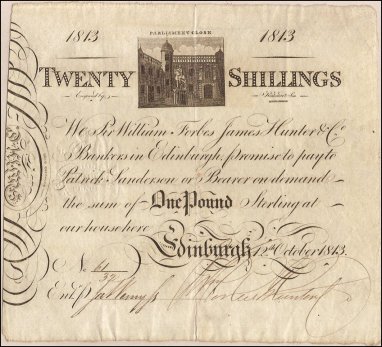 PARLIAMENT CLOSE
1813 1813
TWENTY SHILLINGS
We Sir William Forbes James Hunter & Co
Bankers in Edinburgh, promise to pay to
Patrick Sanderson or Bearer on demand
the sum of One Pound Sterling at
our house here
Edinburgh 12th October 1813.
No 61
32
Entd